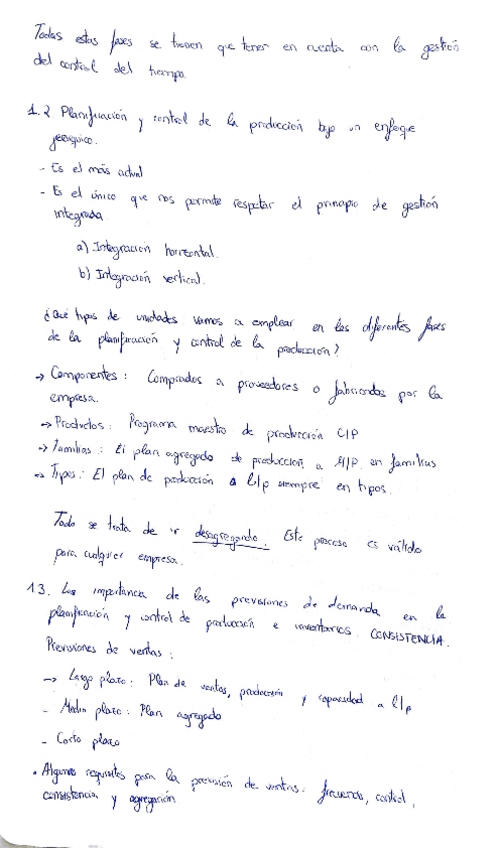 Todas estas fases se tienen que tener en cuenta con la gestión
del control del tiempo
1.2 Planificación y control de la producción bajo un enfoque
jerárquico.
- Es el más actual
- Es el único que nos permite respetar el principio de gestión
integrada
a) Integración horizontal.
b) Integración vertical.
¿Qué tipos de unidades vamos a emplear en las diferentes fases
de la planificación y control de la producción?
→ Componentes: Comprados a proveedores o fabricados por la
empresa.
→ Productos: Programa maestro de producción C/P
→ Familias: El plan agregado de producción a M/P en familias
→ Tipos: El plan de producción a L/p siempre en tipos.
Todo se trata de ir desagregando. Este proceso es válido
para cualquier empresa.
13. La importancia de las previsiones de demanda en la
planificación y control de producción e inventarios. CONSISTENCIA.
Previsiones de ventas:
→ Largo plazo: Plan de ventas, producción y capacidad a l/p
- Medio plazo: Plan agregado
- Corto plazo
• Algunos requisitos para la previsión de ventas: frecuencia, control,
consistencia y agregación